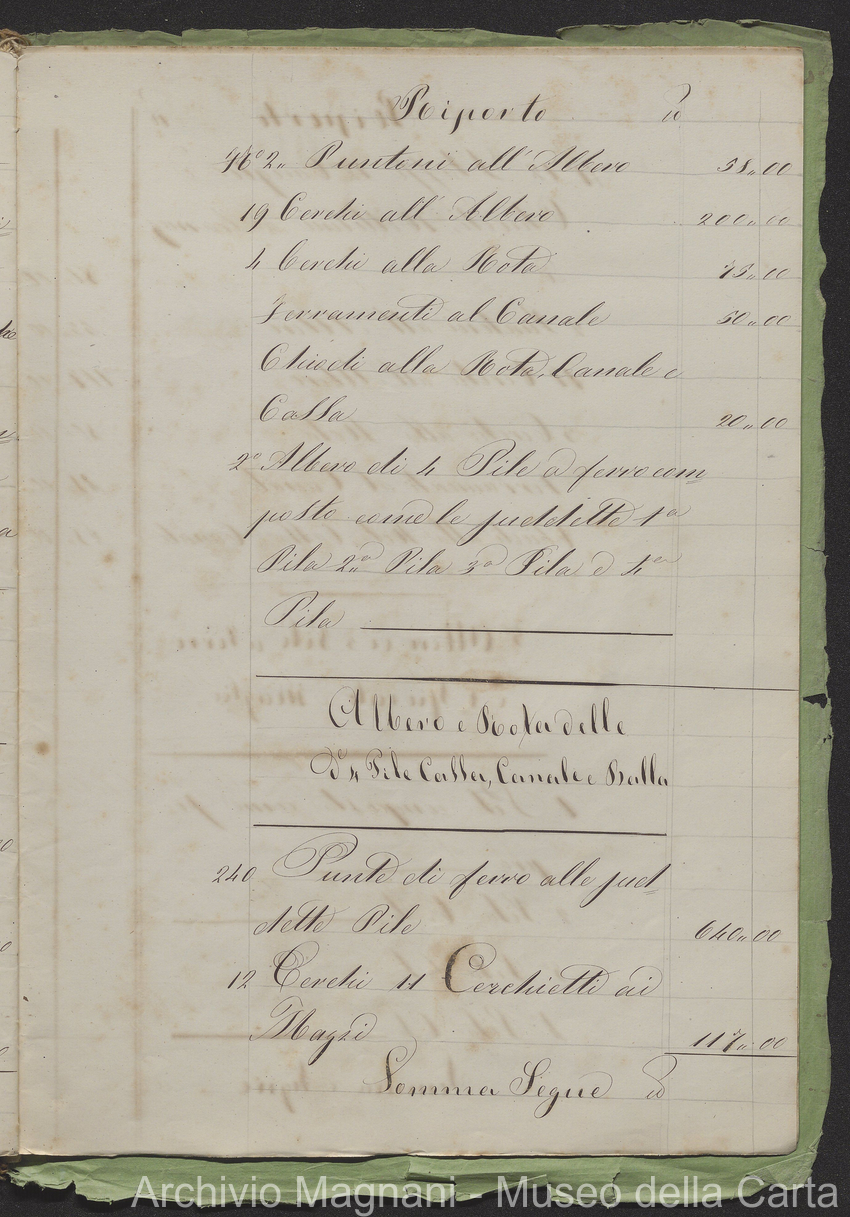 Riporto
N° 2,, Puntoni all' Albero 58,,00
19 Cerchi all' Albero 200,,00
4 Cerchi alla Rota 75,,00
Ferramenti al Canale 50,,00
Chiodi alla Rota, Canale e
Cassa 20,,00
2° Albero di 4 Pile a ferro com
posto come le suddette 1a
Pila 2,,a Pila 3a Pila e 4a
Pila
Albero e Rota delle
de 4 Pile Cassa, Canale e Balla
240 Punte di ferro alle sud
dette Pile 640,,00
12 Cerchi 11 Cerchietti ai
Mazzi 117,,00
Somma Segue
Archivio Magnani - Museo della Carta